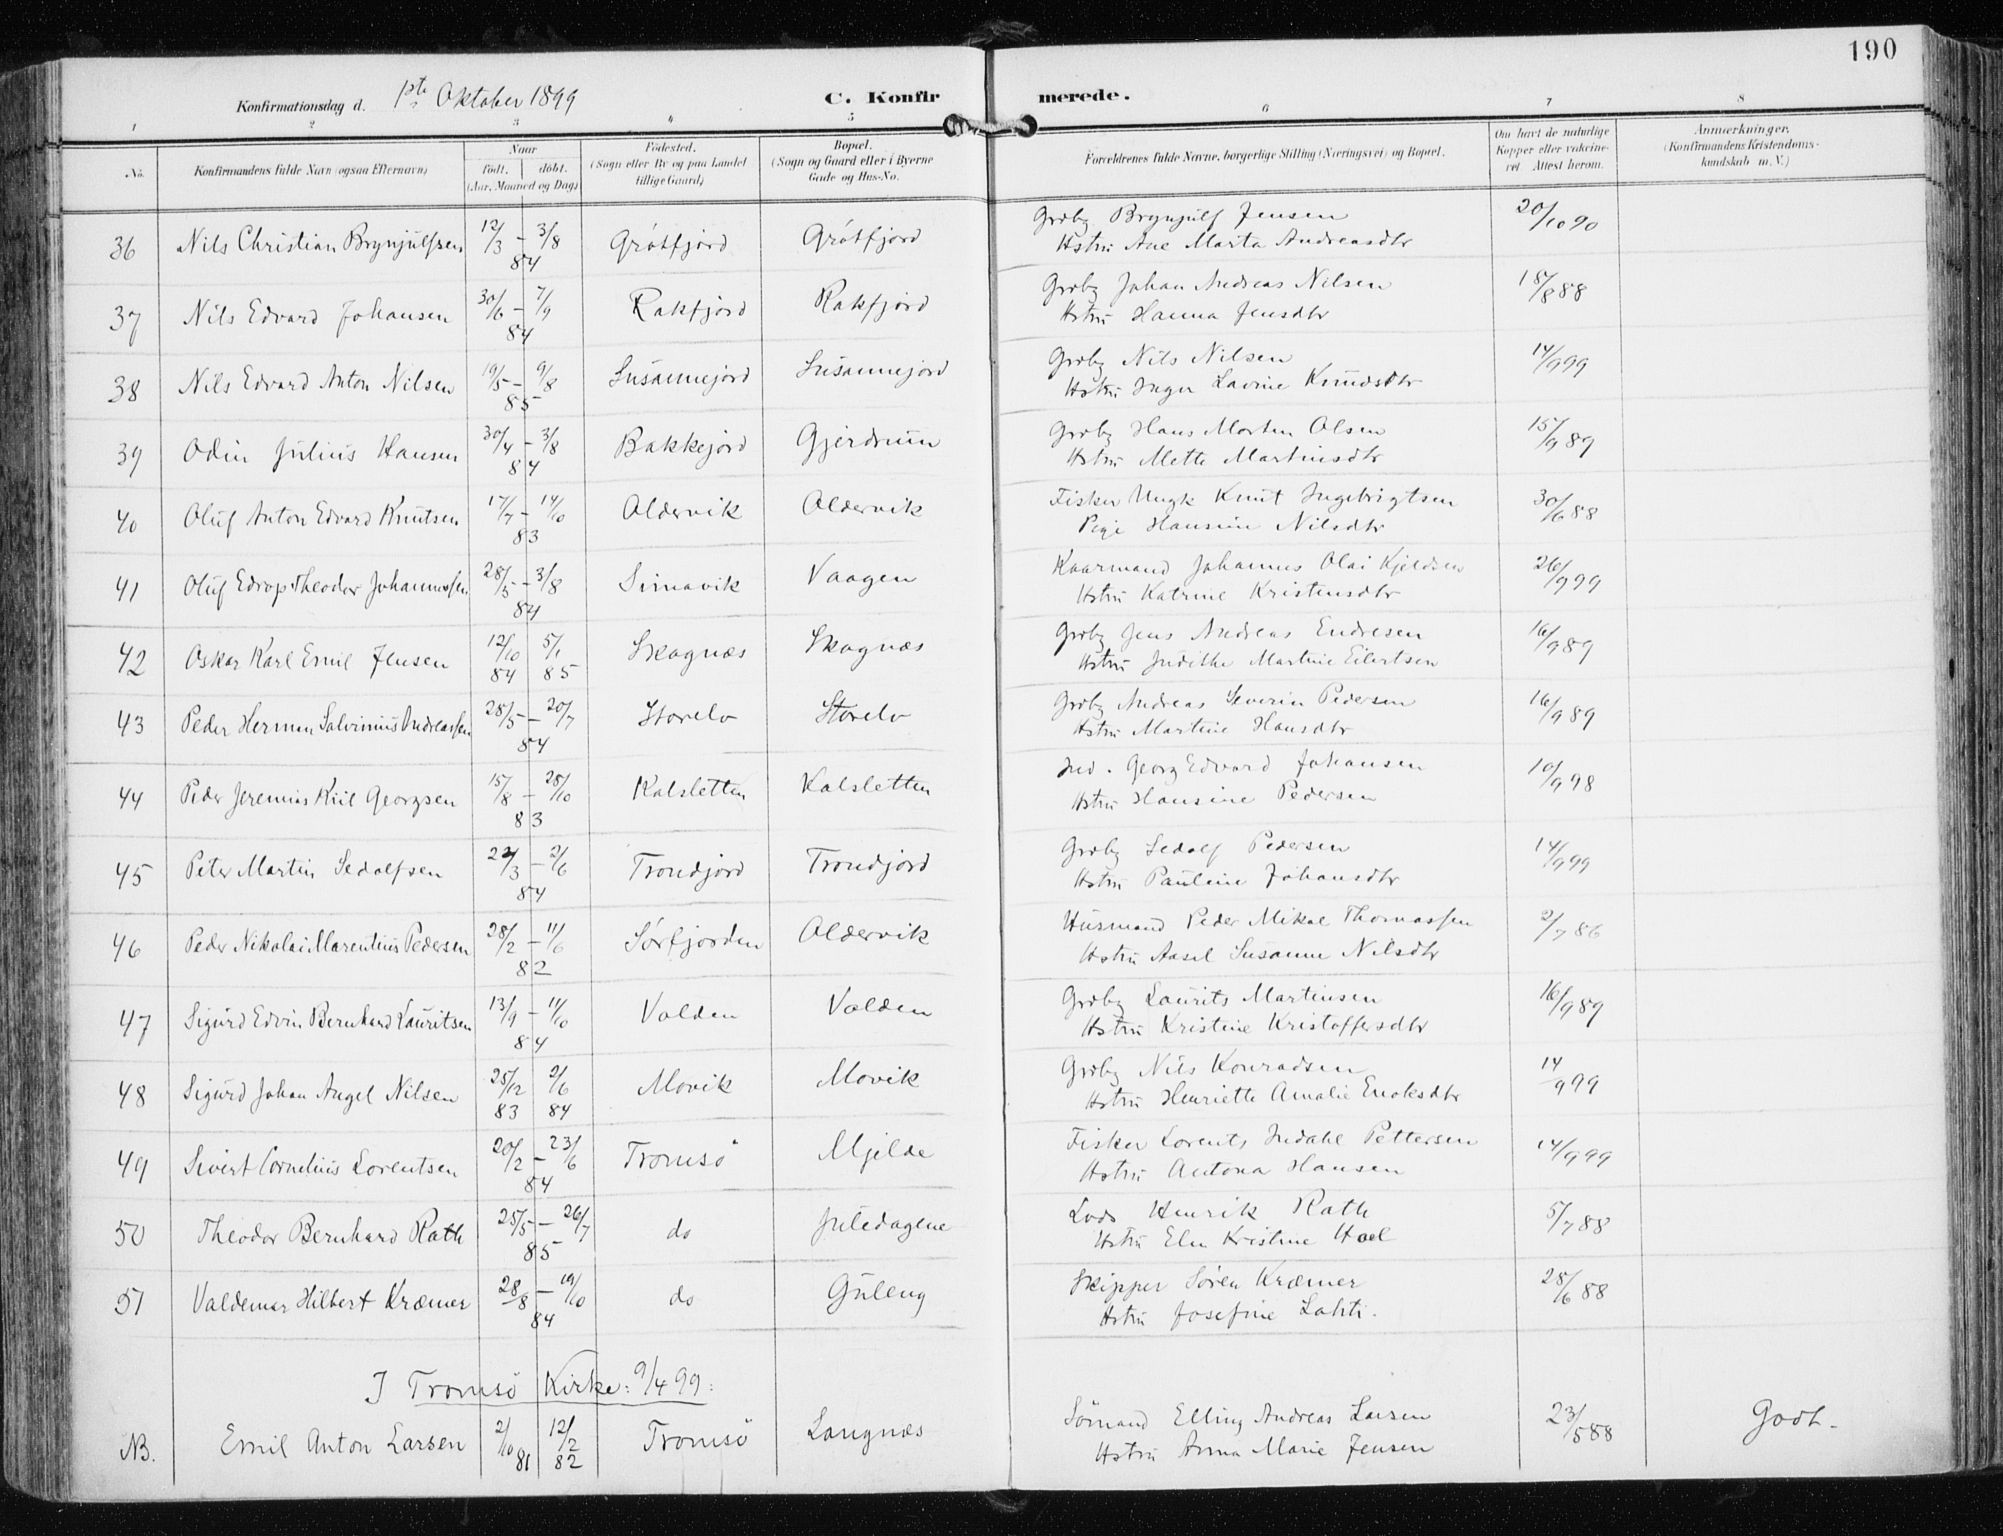 190
Konfirmationsdag d. 1ste Oktober 1899 C. Konfirmerede.
1 2 3 4 5 6 7 8
No. Konfirmandens fulde Navn (ogsaa Efternavn) Naar født. døbt. (Aar, Maaned og Dag) Fødested. (Sogn eller By og paa Landet tillige Gaard) Bopæl. (Sogn og Gaard eller i Byerne Gade og Hus-No. Forældrenes fulde Navne, borgerlige Stilling (Næringsvei) og Bopæl. Om havt de naturlige Kopper eller vakcineret. Attest herom. Anmærkninger. (Konfirmandens Kristendomskundskab m. V.)
36 Nils Christian Brynjulfsen 12/3 – 3/8 84 Grøtfjord Grøtfjord Grdbg Brynjulf Jensen 20/10 90
Hstru Ane Marta Andreasdtr
37 Nils Edvard Johansen 30/6 – 7/9 84 Rakfjord Rakfjord Grdbg Johan Andreas Nilsen 18/8 88
Hstru Hanna Jensdtr
38 Nils Edvard Anton Nilsen 19/5 – 9/8 85 Susannejord Susannejord Grdbg Nils Nilsen 14/9 99
Hstru Inger Lavine Knudsdtr
39 Odin Julius Hansen 30/4 – 3/8 84 Bakkejord Gjerdrum Grdbg Hans Morten Olsen 15/9 89
Hstru Mette Martinsdtr
40 Oluf Anton Edvard Knutsen 17/7 – 14/10 83 Oldervik Oldervik Fisker Ungk Knut Ingebrigtsen 30/6 88
Pige Hansine Nilsdtr
41 Oluf Edrop Theodor Johannessen 28/5 – 3/8 84 Simavik Vaagen Kaarmand Johannes Olai Kjeldsen 26/9 99
Hstru Katrine Kristensdtr
42 Oskar Karl Emil Jensen 12/10 84 5/1 85 Skognæs Skognæs Grdbg Jens Andreas Endresen 16/9 89
Hstru Judithe Martine Eilertsen
43 Peder Hermen Salvinius Andreassen 28/5 – 20/7 84 Storelv Storelv Grdbg Andreas Severin Pedersen 16/9 89
Hstru Martine Hansdtr
44 Peder Jeremias Kiil Georgsen 15/8 – 28/10 83 Kalsletten Kalsletten Ind. Georg Edvard Johansen 10/9 98
Hstru Hansine Pedersen
45 Peter Martin Sedolfsen 22/3 – 2/6 84 Trondjord Trondjord Grdbg Sedolf Pedersen 14/9 99
Hstru Pauline Johansdtr
46 Peder Nikolai Marentius Pedersen 28/2 – 11/6 82 Sørfjorden Oldervik Husmand Peder Mikal Thomassen 2/7 86
Hstru Aasel Susanne Nilsdtr
47 Sigurd Edvin Bernhard Lauritsen 13/9 – 11/10 84 Volden Volden Grdbg Laurits Martinsen 16/9 89
Hstru Kristine Kristoffersdtr
48 Sigurd Johan Angel Nilsen 25/12 83 2/6 84 Movik Movik Grdbg Nils Konradsen 14/9 99
Hstru Henriette Amalie Enoksdtr
49 Sivert Cornelius Lorentsen 20/2 – 23/6 84 Tromsö Mjelde Fisker Lorents Indahl Pettersen 14/9 99
Hstru Antona Hansen
50 Theodor Bernhard Rath 25/5 – 26/7 85 do Juledagene Lods Henrik Rath 5/7 88
Hstru Elen Kristine Hoel
51 Valdemar Hilbert Kræmer 28/8 – 19/10 84 do Guleng Skipper Sören Kræmer 28/6 88
Hstru Josefine Lahti.
I Tromsö Kirke: 9/4 99:
NB. Emil Anton Larsen 2/10 81 12/2 82 Tromsö Langnæs Sömand Elling Andreas Larsen 23/5 88 Godt.
Hstru Anna Marie Jensen